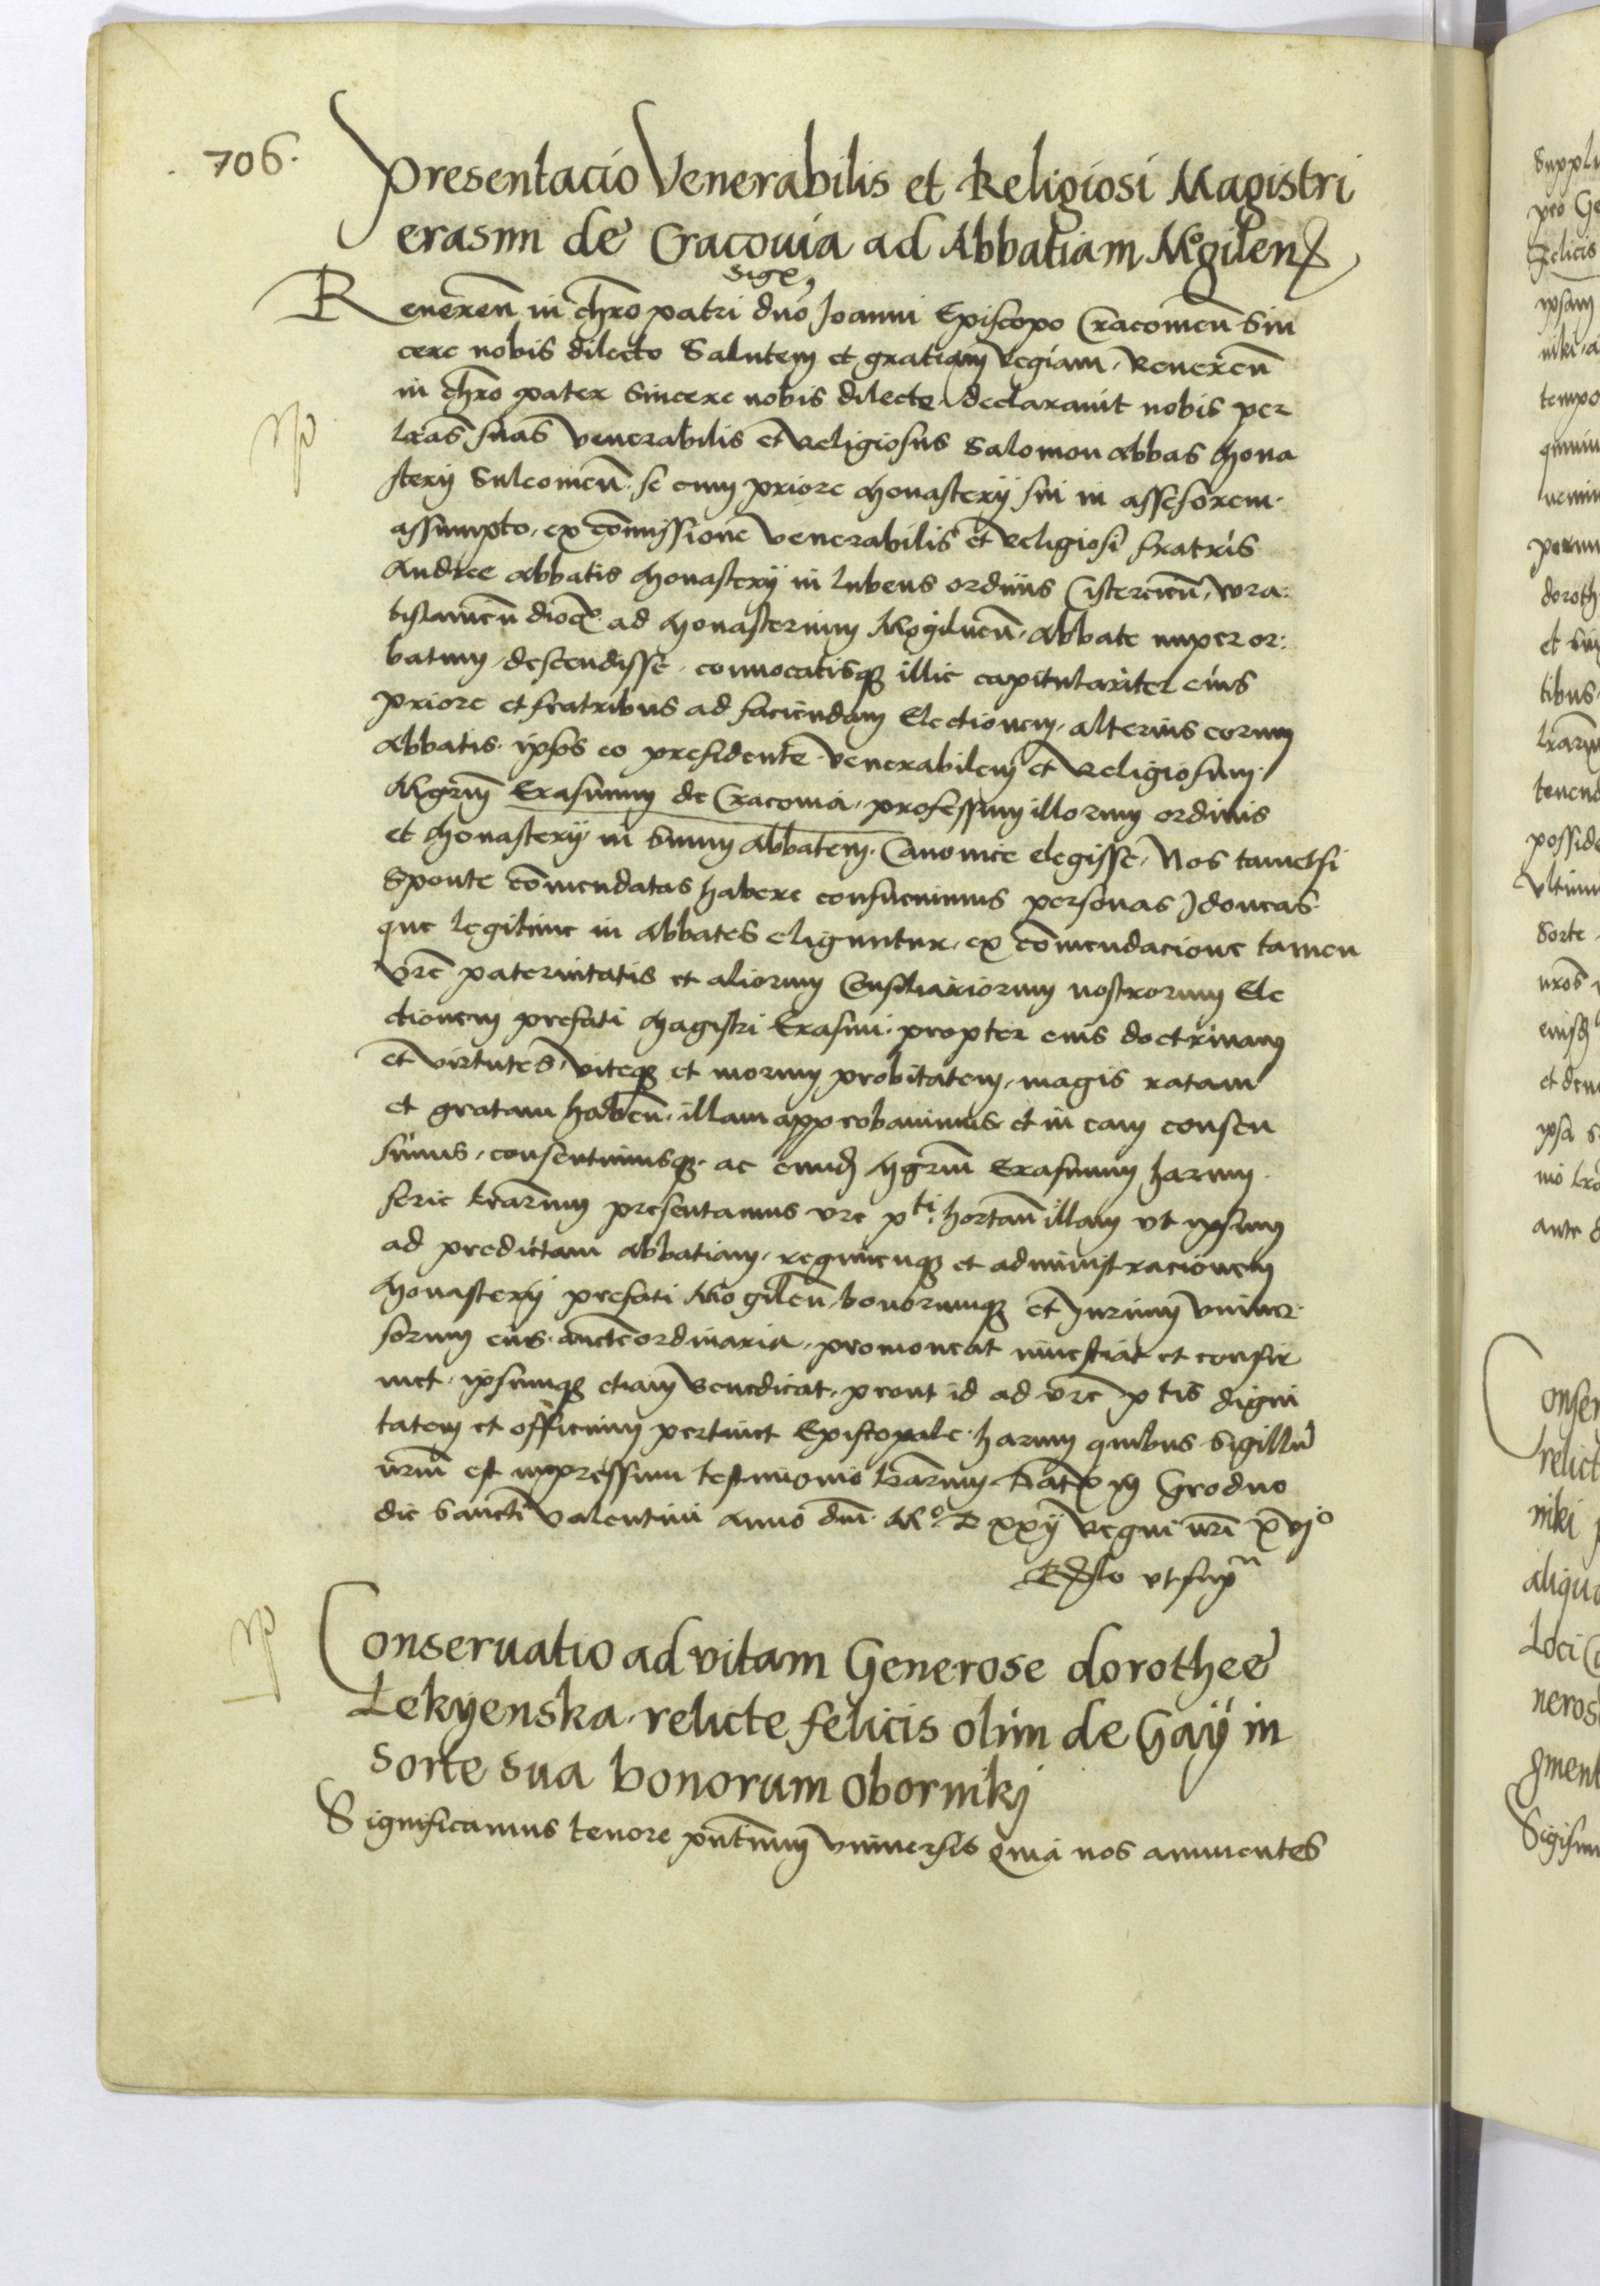 706.
Presentacio Venerabilis et Religiosi Magistri
erasmi de Cracouia ad Abbatiam Mogilen
Sigs
Reueren̄ in chr̄o patri dn̄o Joanni Episcopo Cracouien̄ Sin
cere nobis dilecto Salutem et gratiam regiam. Reueren̄
in chr̄o pater Sincere nobis dilecte. declarauit nobis per
lr̄as suas venerabilis et Religiosus Salomon abbas Mona
sterij Suleouien̄. se cum priore Monasterij sui in assesorem.
assumpto. ex com̄issione venerabilis et religiosi fratris
Andree abbatis Monasterij in lubens ordinis Cistercien̄. wra:
tislauien̄ dioc. ad Monasterium Mogilnen̄. Abbate nuper or:
batum. descendisse. conuocatisq illic capitulariter eius
priore et fratribus ad faciendam Electionem. alterius eorum
Abbatis. ipsos eo presidente. venerabilem et Religiosum.
Mgr̄m Erasmum de Cracouia. professum illorum ordinis
et Monasterij in Suum Abbatem. Canonice elegisse. Nos tametsi
Sponte com̄endatas habere consueuimus personas Idoneas.
que legitime in Abbates eliguntur. ex com̄endacione tamen
vr̄e paternitatis et aliorum Consiliariorum nostrorum Ele
ctionem prefati Magistri Erasmi. propter eius doctrinam
et virtutes. viteq et morum probitatem. magis ratam
et gratam haben̄. illam approbauimus. et in eam consen
simus. consentimusq. ac eund Mgr̄m Erasmum harum.
serie lr̄arum presentamus vre p ti. hortan̄ illam vt ipsum
ad predictam abbatiam. regimenq et administracionem
Monasterij prefati Mogilen̄. bonorumq et Jurium vniuer.
sorum eius. aucte ordinaria. promoueat inuestiat et confir
met. ipsumq etiam benedicat. prout id ad vr̄e p tis digni
tatem et officium pertinet Episcopale. harum quibus Sigillū
nr̄m est impressum testimonio lr̄arum. Dat in Grodno
die Sancti Valentini anno dn̄i. Mº. D xxij Regni nr̄i xvjº
Rela vt supᵃ
Conseruatio ad vitam Generose dorothee
Lekyenska. relicte felicis olim de Gaÿ in
Sorte sua bonorum Obornikj
Significamus tenore pn̄tium vniuersis Quia nos annuentes